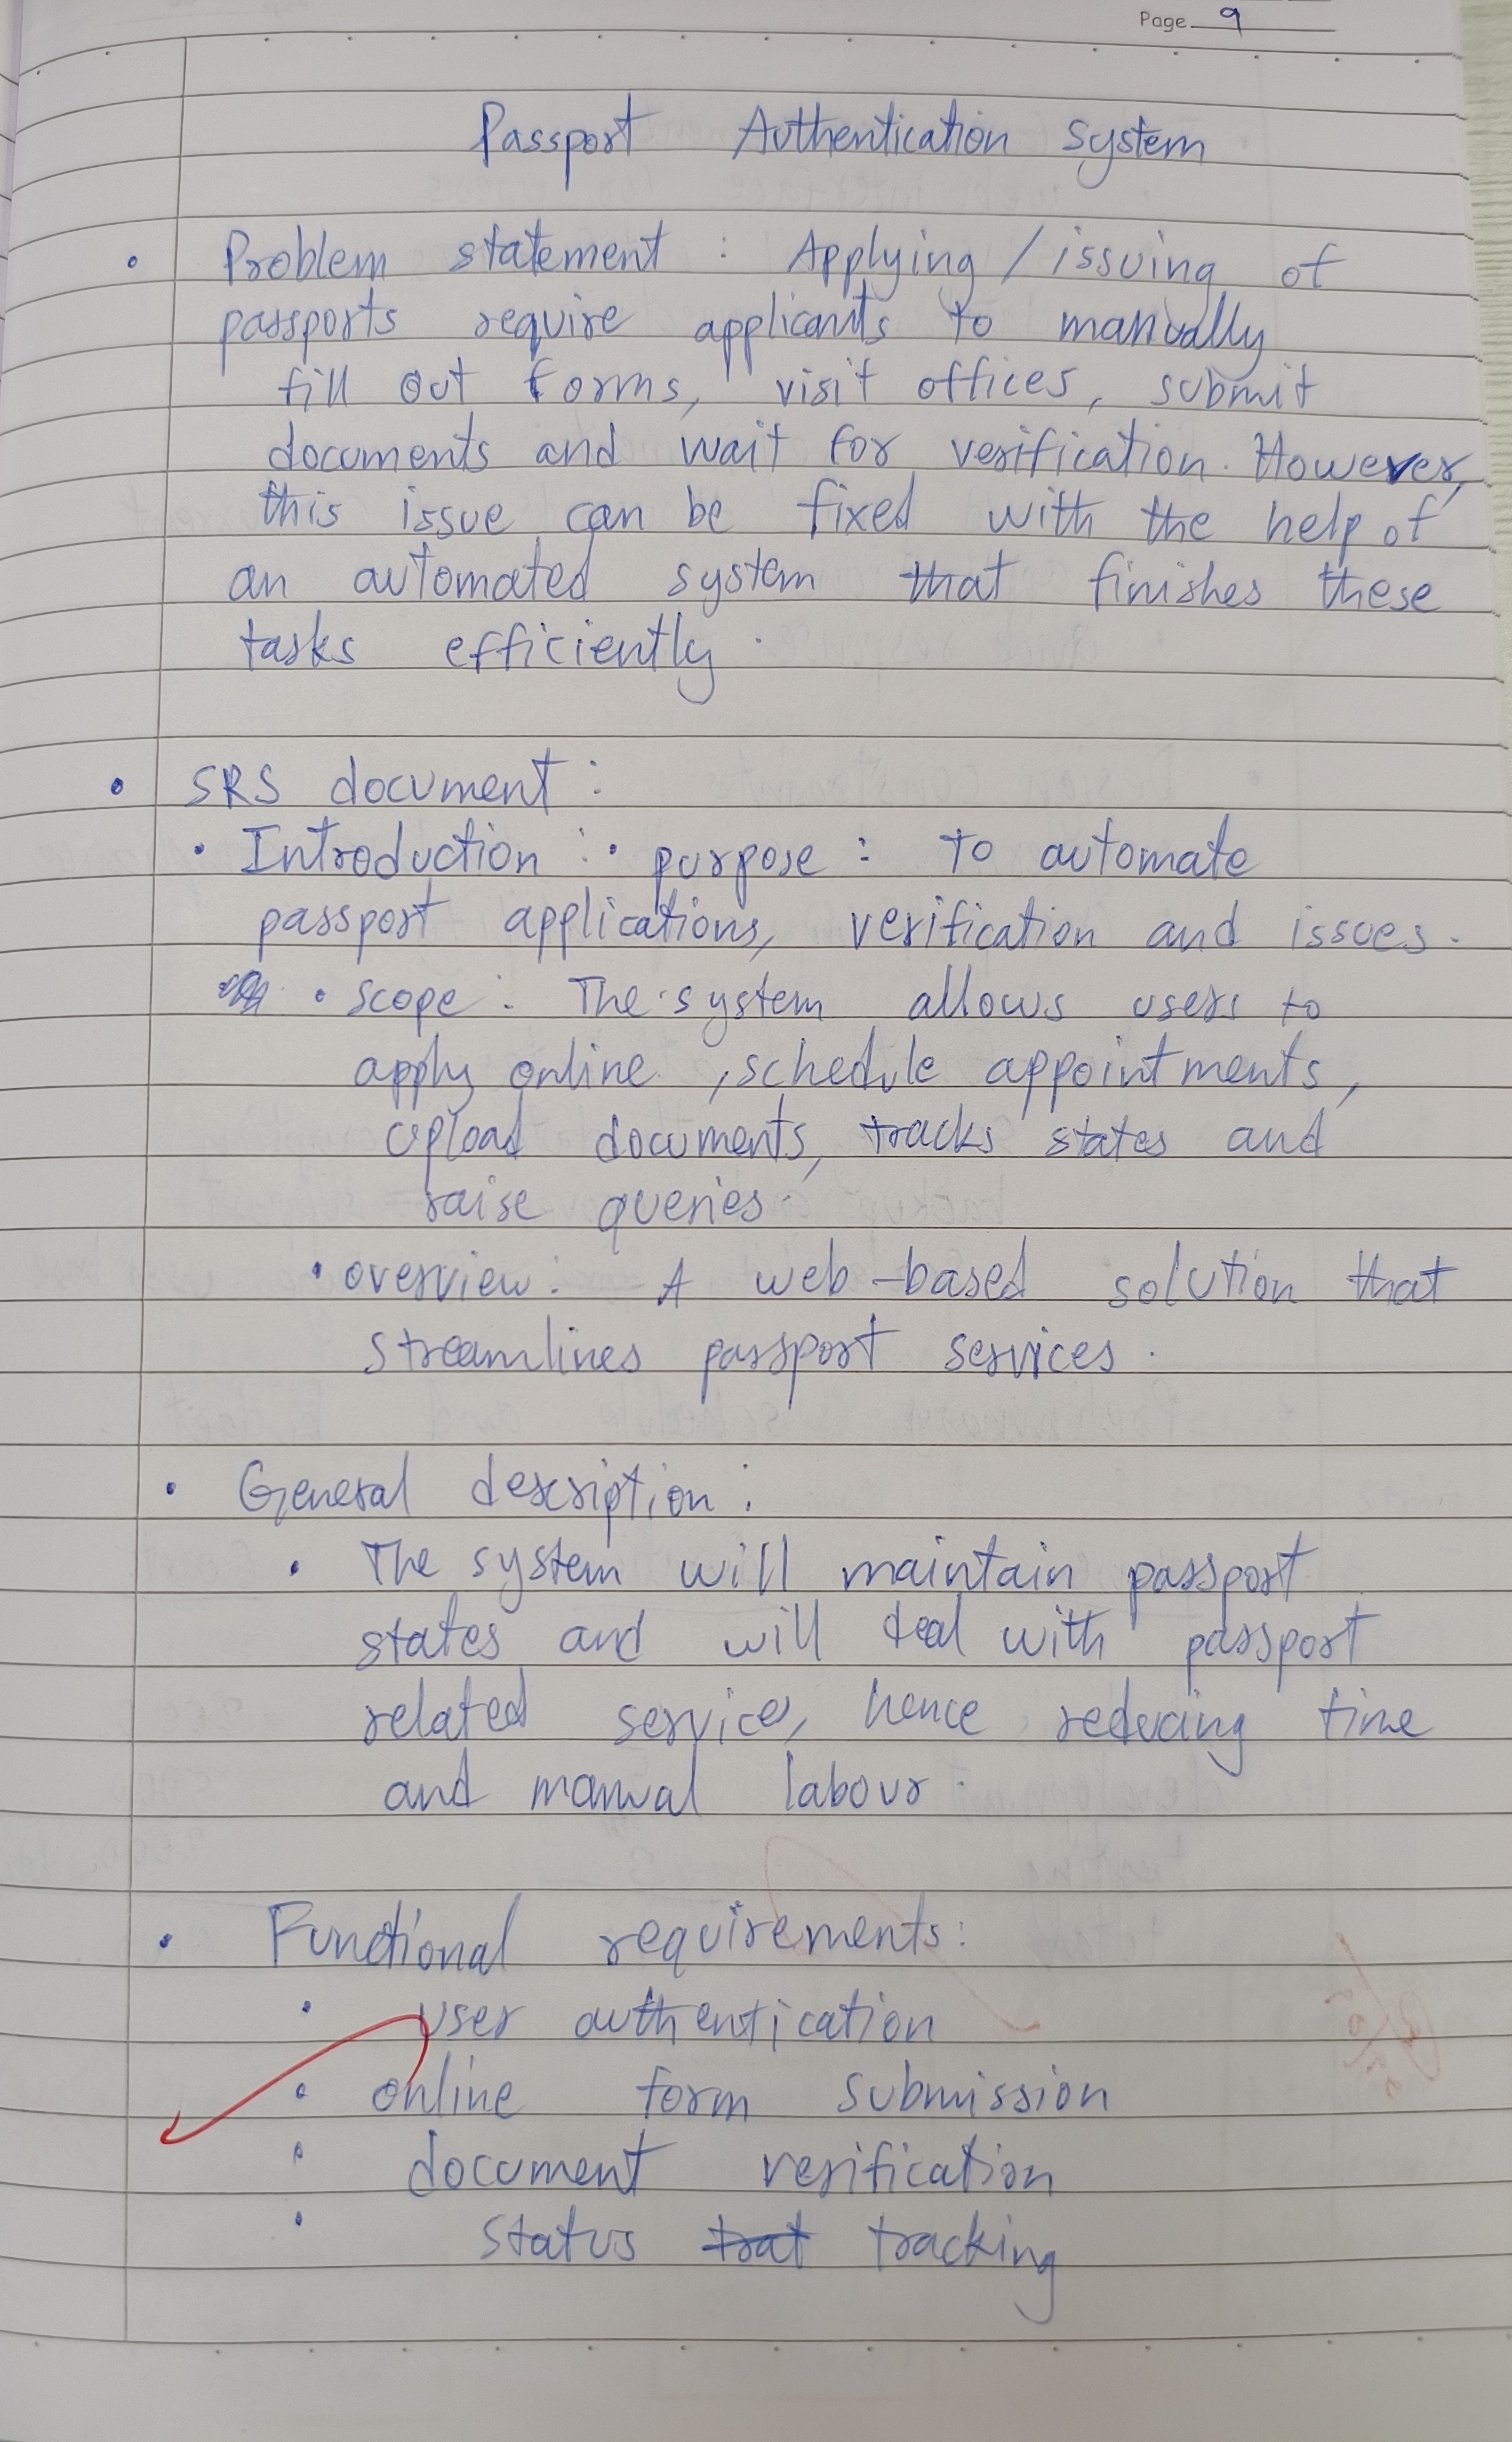 Page 9
Passport Authentication System
• Problem statement : Applying / issuing of
passports require applicants to manually
fill out forms, visit offices, submit
documents and wait for verification. However,
this issue can be fixed with the help of
an automated system that finishes these
tasks efficiently.
• SRS document :
• Introduction : • purpose : To automate
passport applications, verification and issues.
• scope : The system allows users to
apply online, schedule appointments,
upload documents, tracks states and
raise queries.
• overview : A web-based solution that
streamlines passport services.
• General description :
• The system will maintain passport
states and will deal with passport
related service, hence reducing time
and manual labour.
• Functional requirements :
• user authentication
• online form submission
• document verification
• status trat tracking